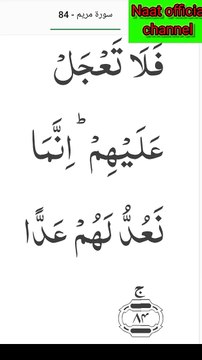 سورة مريم - 84
Naat official
channel
فَلَا تَعۡجَلۡ
عَلَيۡهِمۡ ؕ اِنَّمَا
نَعُدُّ لَهُمۡ عَدًّا
ۚ
۸۴